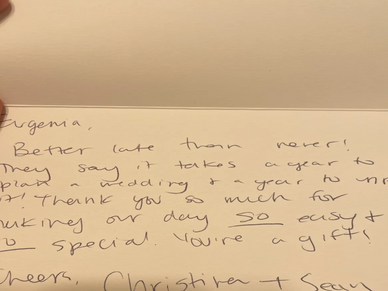 Eugenia,
Better late than never!
They say it takes a year to
plan a wedding + a year to
it! Thank you so much for
making our day SO easy +
SO special. You're a gift!
Cheers, Christina + Sean